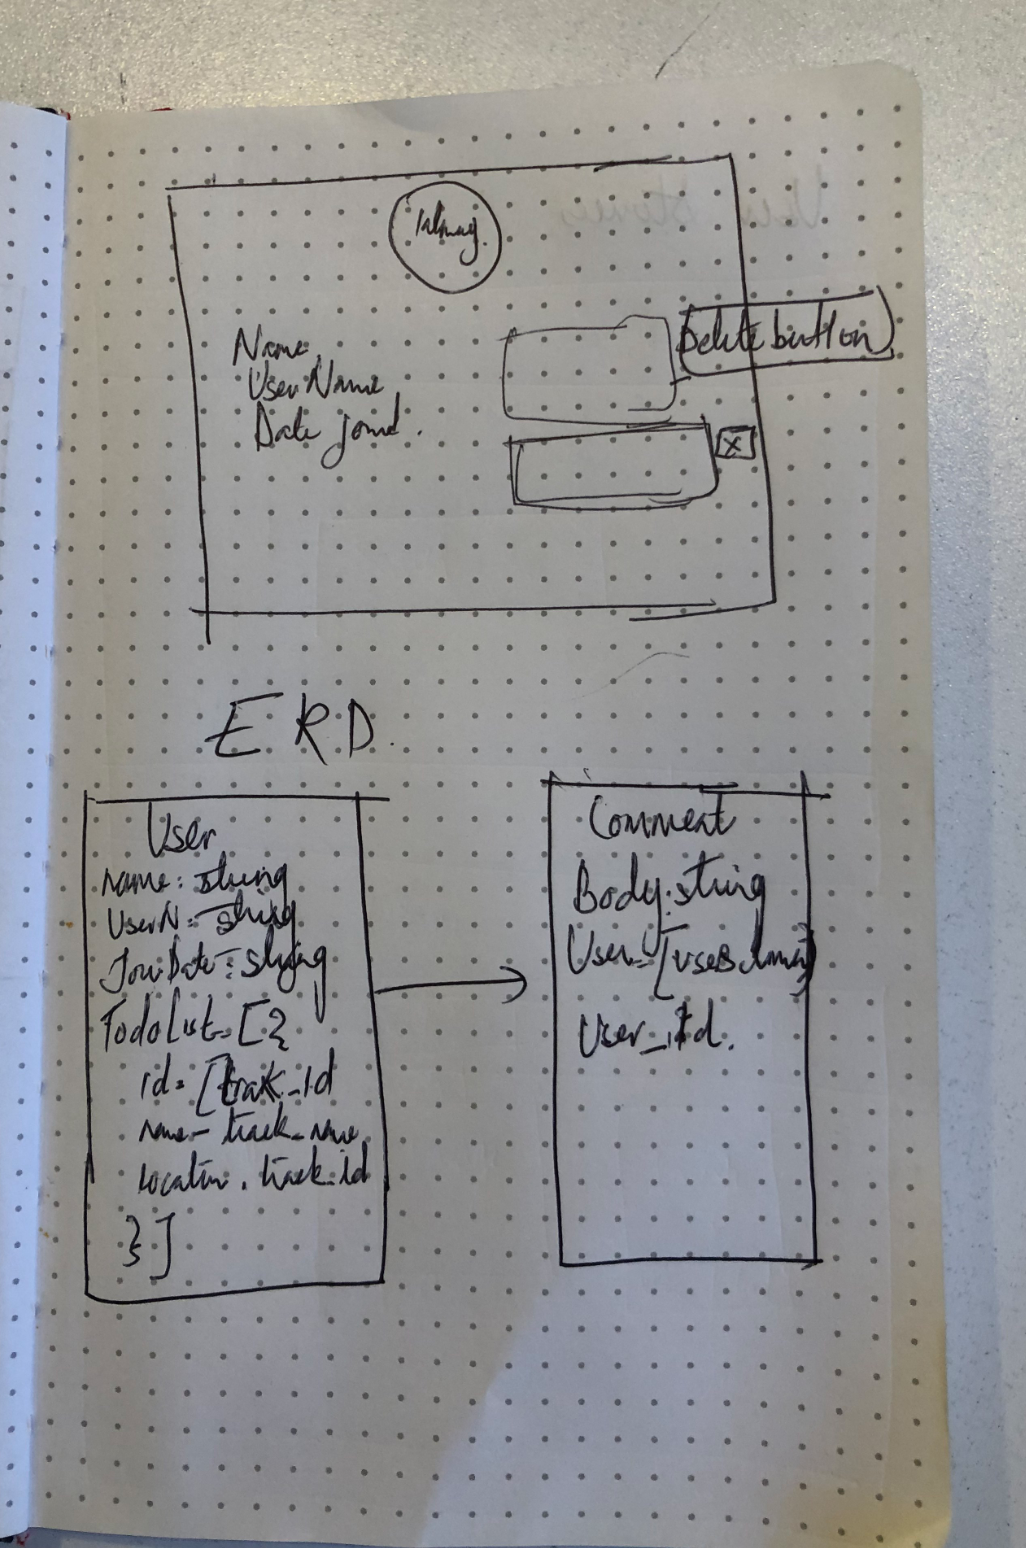 Name
UserName
Date joined.
Delete button
X
ERD.
User
name: string
UserN: string
JoinDate: string
TodoList = [{
id = [track_id
name - track_name
location. track_id
}]
Comment
Body: string
User = [
User_Id.